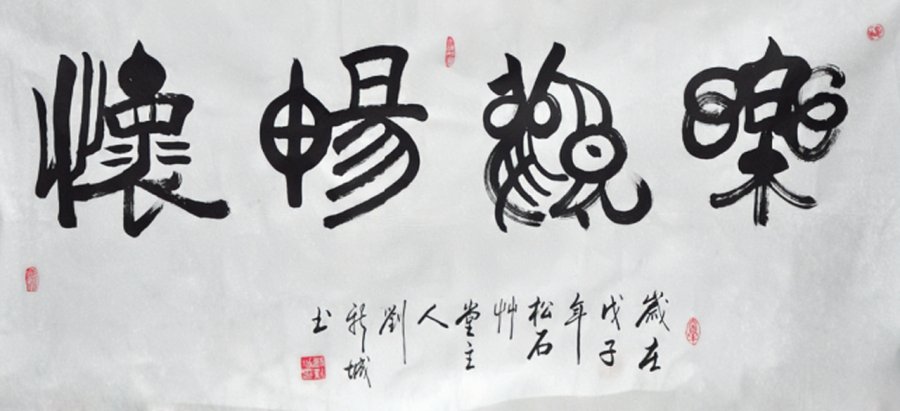 樂觀暢懷
歲在戊子年松石艸堂主人劉新城书